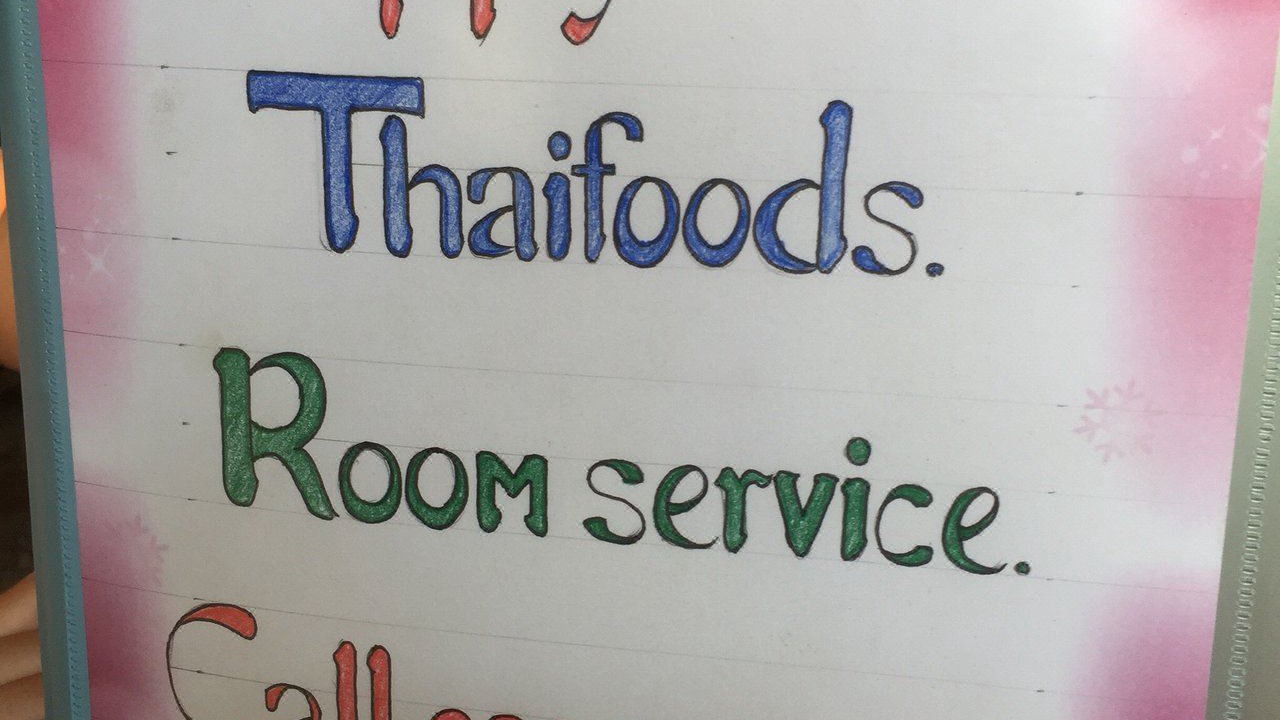 Thaifoods.
Room service.
Call